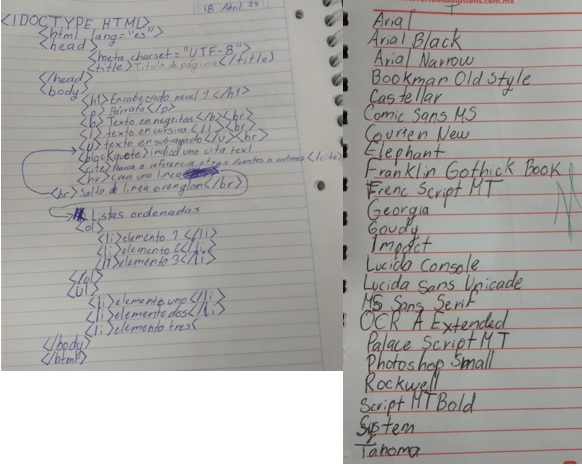 18 Abril 23
<!DOCTYPE HTML>
<html lang="es">
<head>
<meta charset="UTF-8">
<title> Titulo de página </title>
</head>
<body>
<h1> Encabezado nivel 1 </h1>
<p> Párrafo </p>
<b> Texto en negritas </b> <br>
<i> texto en cursiva </i> <br>
<u> texto en subrayado </u> <br>
<blockquote> indica una cita text
<cite> Hacea referencia otras fuentes o autores </cite>
<hr> Crea una linea
<br> Salto de linea o renglon </br>
Listas ordenadas
<ol>
<li> elemento 1 </li>
<li> elemento 2 </li>
<li> elemento 3 </li>
</ol>
<ul>
<li> elemento uno </li>
<li> elemento dos </li>
<li> elemento tres
</body>
</html>
Arial
Arial Black
Arial Narrow
Bookman Old Style
Castellar
Comic Sans MS
Courien New
Elephant
Franklin Gothick Book
Frenc Script MT
Georgia
Goudy
Impact
Lucida Console
Lucida Sans Unicade
MS Sans Serif
OCR A Extended
Palace Script MT
Photoshop Small
Rockwell
Script MT Bold
System
Tahoma